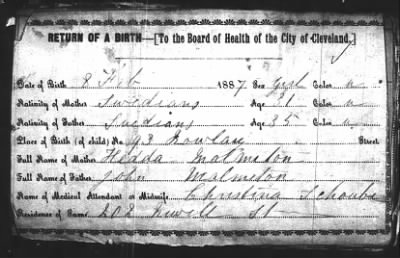 RETURN OF A BIRTH—[To the Board of Health of the City of Cleveland.]
Date of Birth 8 Feb 1887 Sex girl Color w
Nativity of Mother Swedians Age 31 Color w
Nativity of Father Suedians Age 35 Color w
Place of Birth (of child) No. 93 Rowlay Street
Full Name of Mother Hedda Malmston
Full Name of Father John Malmston
Name of Medical Attendant or Midwife Christina Schoube
Residence of Same 202 St